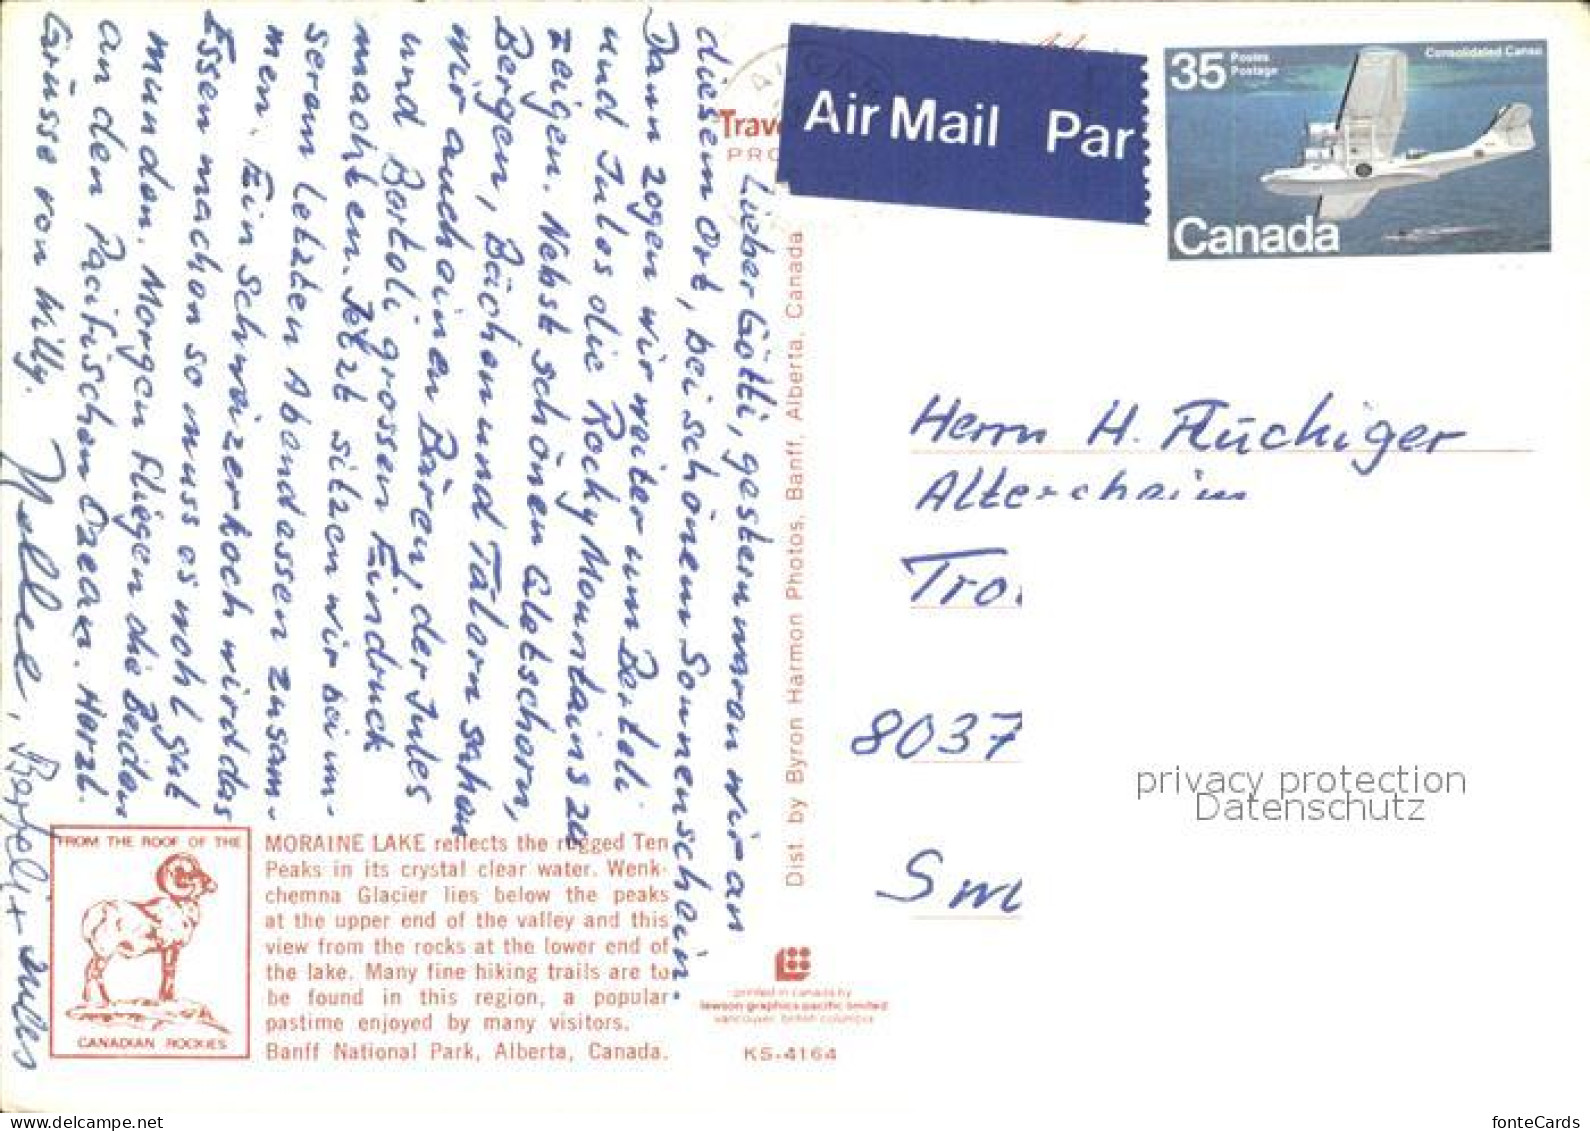 Lieber Götti, gestern waren wir an
diesem Ort, bei schönem Sonnenschein.
Dann zogen wir weiter um Bertoli
und Jules die Rocky Mountains zu
zeigen. Nebst schönen Gletschern,
Bergen, Bächen und Tälern sahen
wir auch einen Bären, der Jules
und Bertoli grossen Eindruck
machten. Jetzt sitzen wir bei un-
serem letzten Abendessen zusam-
men. Ein Schweizerkoch wird das
Essen machen so muss es wohl gut
munden. Morgen fliegen die Beiden
an den Pacifischen Ozean. Herzl.
Grüsse von Willy.
Nelle, Berteli + Jules
Trave
PRO
Air Mail Par
35 Postes
Postage
Consolidated Canso
Canada
Herrn H. Flückiger
Altersheim
Tro
8037
Sw
privacy protection
Datenschutz
Dist. by Byron Harmon Photos, Banff, Alberta, Canada
FROM THE ROOF OF THE
CANADIAN ROCKIES
MORAINE LAKE reflects the rugged Ten
Peaks in its crystal clear water. Wenk-
chemna Glacier lies below the peaks
at the upper end of the valley and this
view from the rocks at the lower end of
the lake. Many fine hiking trails are to
be found in this region, a popular
pastime enjoyed by many visitors.
Banff National Park, Alberta, Canada.
printed in canada by
lawson graphics pacific limited
vancouver, british columbia
KS-4164
fonteCards